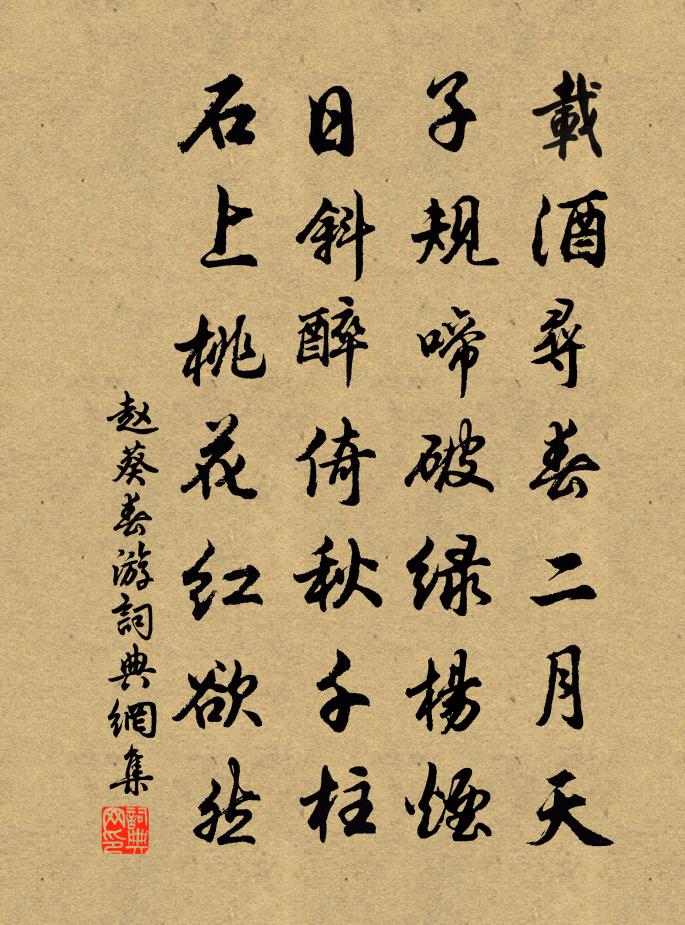 載酒尋春二月天
子規啼破緑楊煙
日斜醉倚秋千柱
石上桃花红欲然
赵葵春游詞典網集
詞典
网印